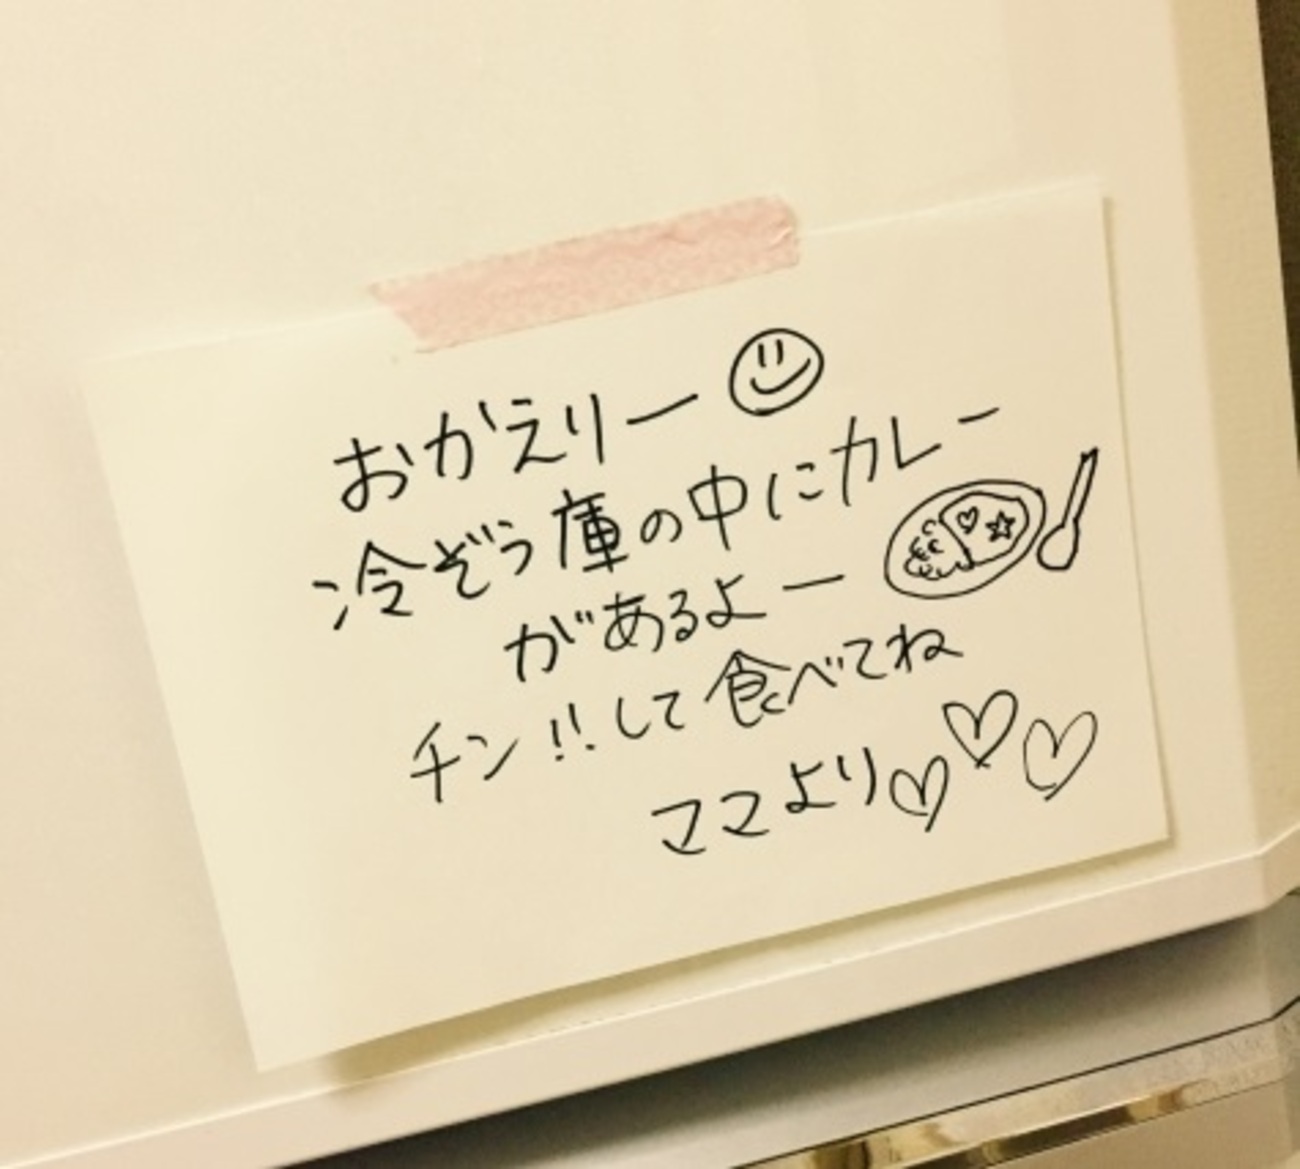 おかえりー
冷ぞう庫の中にカレー
があるよー
チン!!して食べてね
ママより